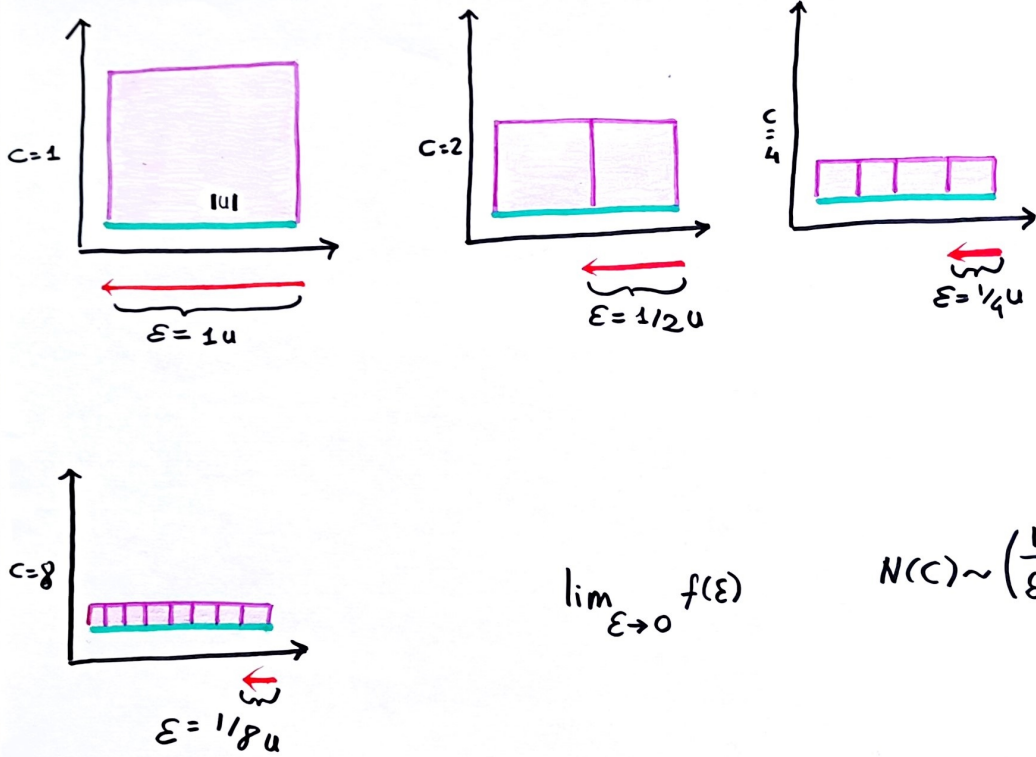 C=1
|u|
ε = 1u
C=2
ε = 1/2 u
C=4
ε = 1/4 u
C=8
ε = 1/8 u
lim ε→0 f(ε)
N(C) ~ (